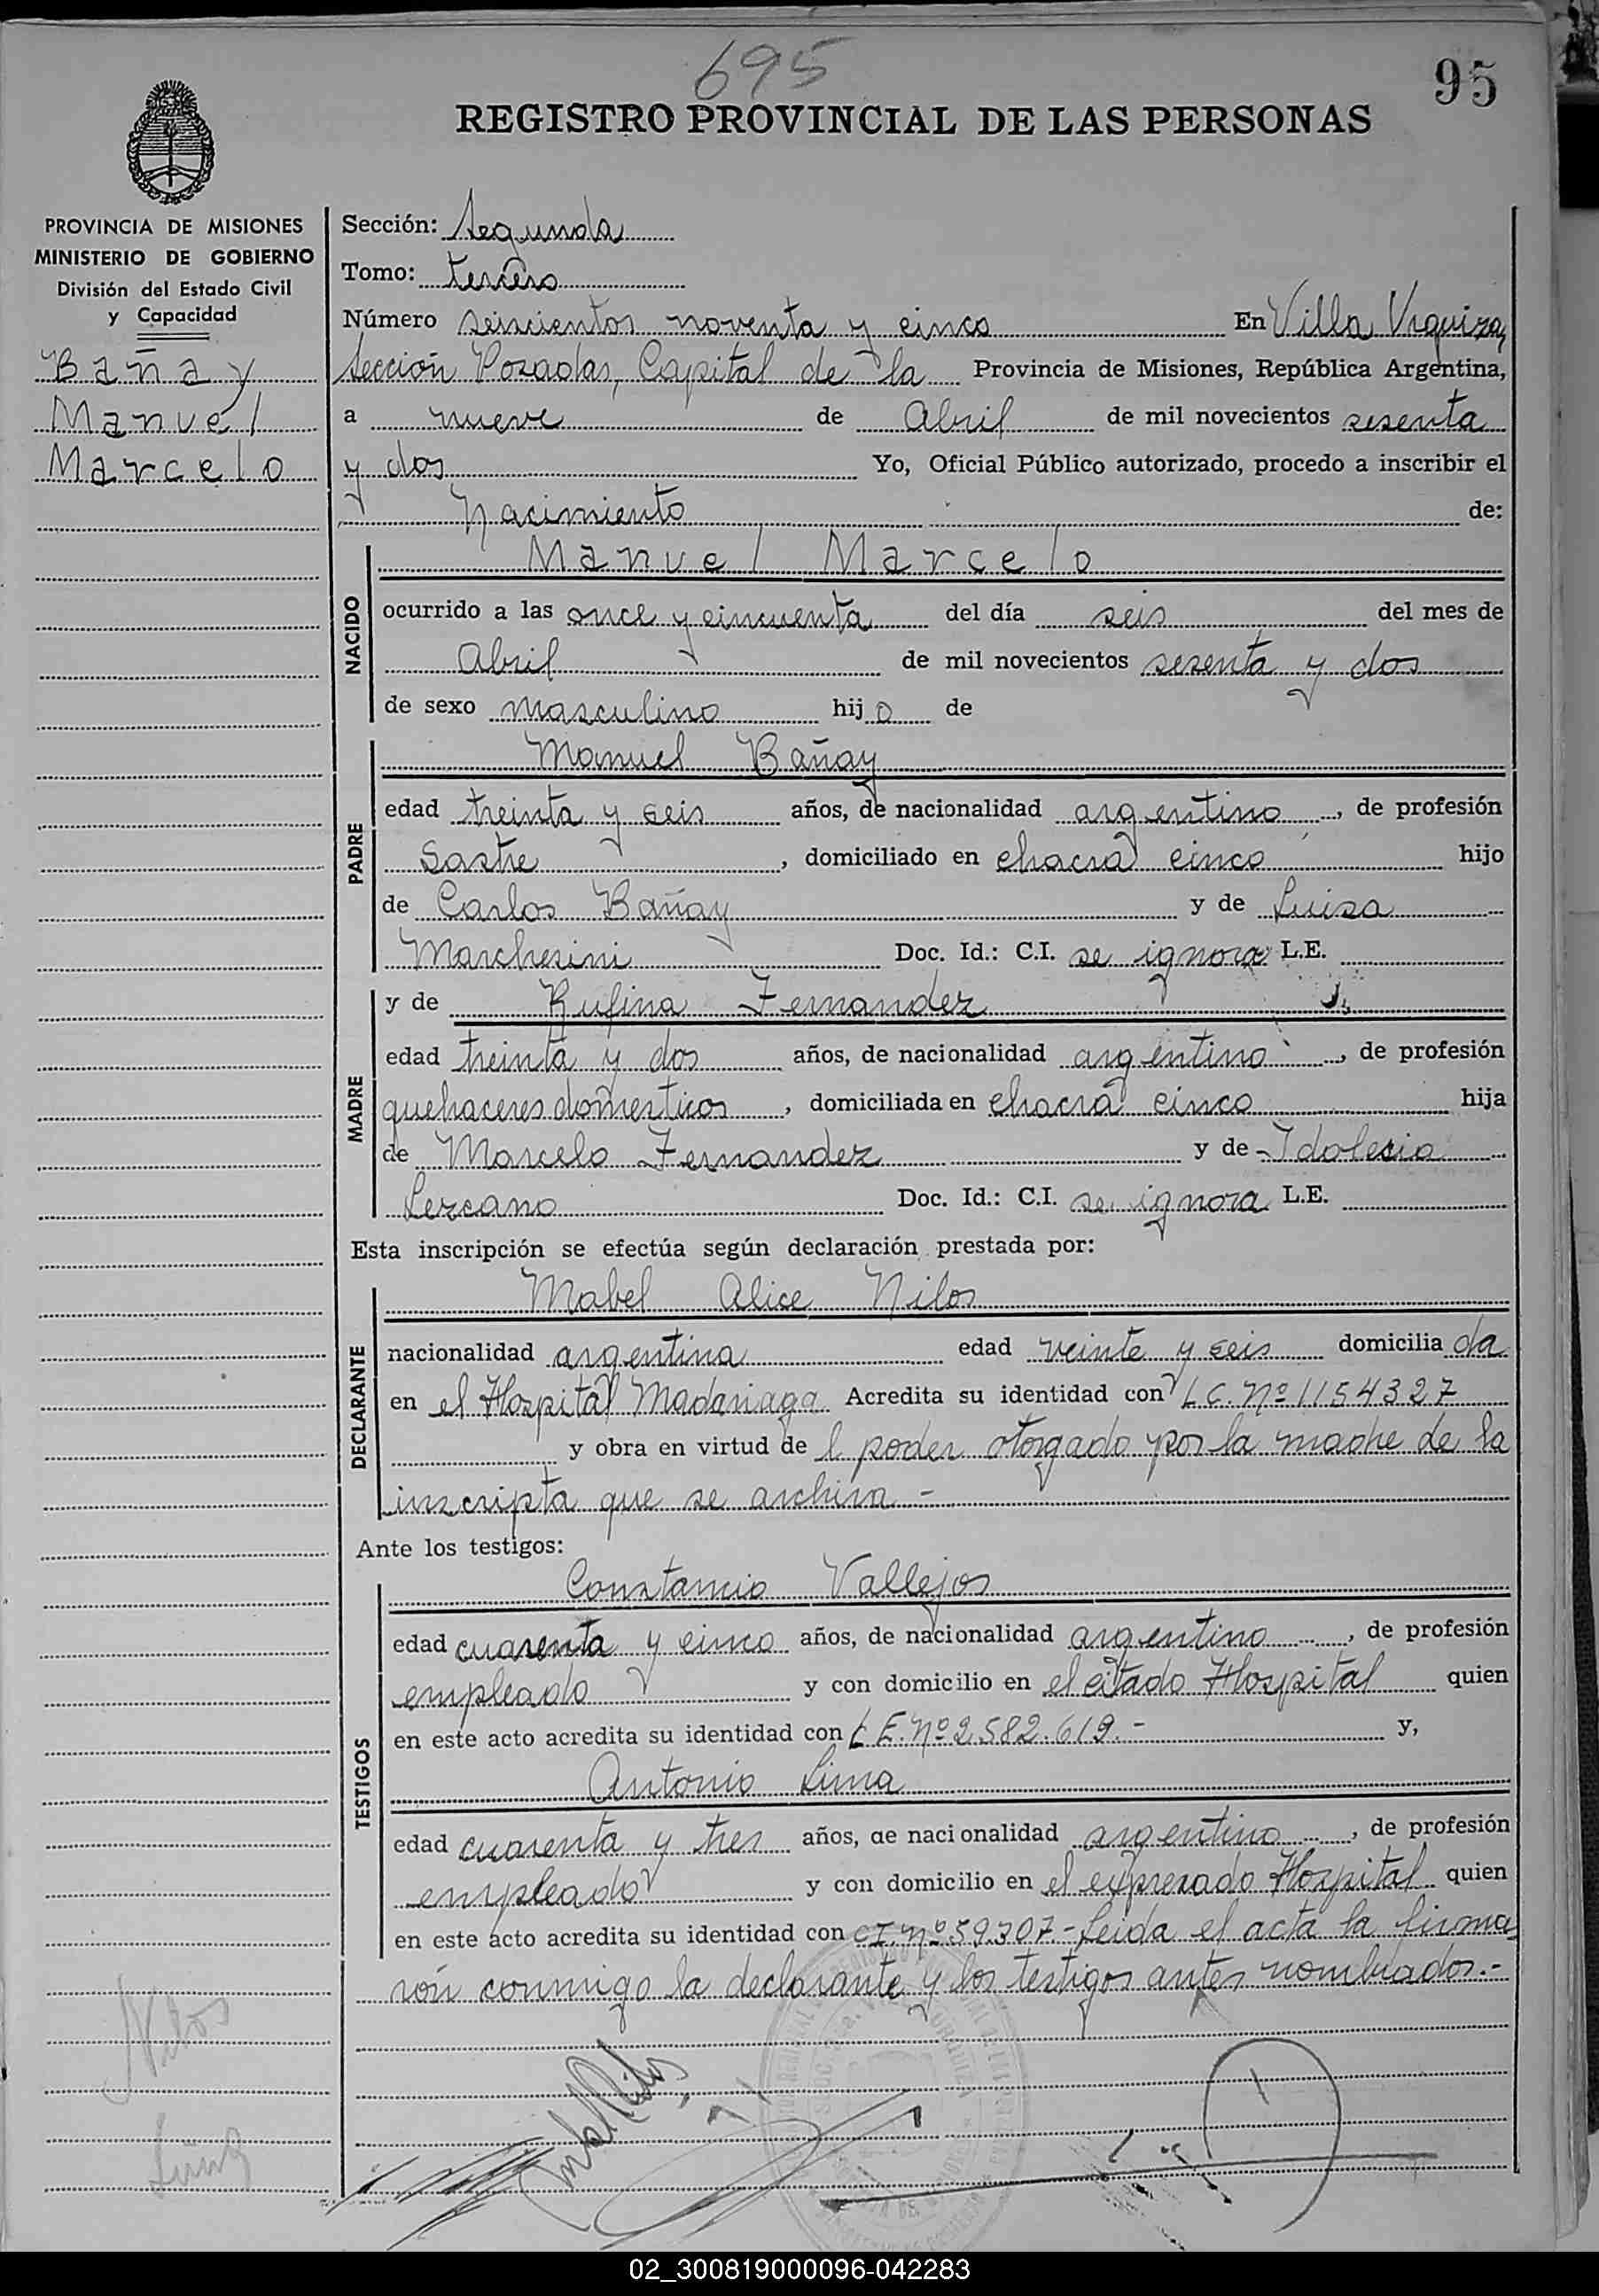 695
95
REGISTRO PROVINCIAL DE LAS PERSONAS
PROVINCIA DE MISIONES
MINISTERIO DE GOBIERNO
División del Estado Civil
y Capacidad
Bañay
Manuel
Marcelo
Sección: Segunda
Tomo: tercero
Número seiscientos noventa y cinco En Villa Urquiza,
Sección Posadas, Capital de la Provincia de Misiones, República Argentina,
a nueve de Abril de mil novecientos sesenta
y dos Yo, Oficial Público autorizado, procedo a inscribir el
Nacimiento de:
NACIDO
Manuel Marcelo
ocurrido a las once y cincuenta del día seis del mes de
Abril de mil novecientos sesenta y dos
de sexo masculino hijo de
PADRE
Manuel Bañay
edad treinta y seis años, de nacionalidad argentino, de profesión
Sastre, domiciliado en chacra cinco hijo
de Carlos Bañay y de Luisa
Marchesini Doc. Id.: C.I. se ignora L.E.
MADRE
y de Rufina Fernandez
edad treinta y dos años, de nacionalidad argentino, de profesión
quehaceres domesticos, domiciliada en chacra cinco hija
de Marcelo Fernandez y de Idolesia
Lezcano Doc. Id.: C.I. se ignora L.E.
Esta inscripción se efectúa según declaración prestada por:
DECLARANTE
Mabel Alice Nilos
nacionalidad argentina edad veinte y seis domiciliada
en el Hospital Madariaga Acredita su identidad con L.C. Nº 1154327
y obra en virtud del poder otorgado por la madre de la
inscripta que se archiva -
Ante los testigos:
TESTIGOS
Constancio Vallejos
edad cuarenta y cinco años, de nacionalidad argentino, de profesión
empleado y con domicilio en el citado Hospital quien
en este acto acredita su identidad con L.E. Nº 2.582.619.- y,
Antonio Lima
edad cuarenta y tres años, de nacionalidad argentino, de profesión
empleado y con domicilio en el expresado Hospital quien
en este acto acredita su identidad con C.I. Nº 59.307 - Leida el acta la firma
rón conmigo la declarante y los testigos antes nombrados.-
Nilos
Lima
02_300819000096-042283